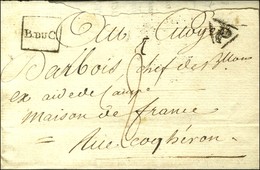 B.DUC
Au Citoyen
Barbois, chef de B.llons
ex aide de Camp
maison de france
Rue Coghéron.